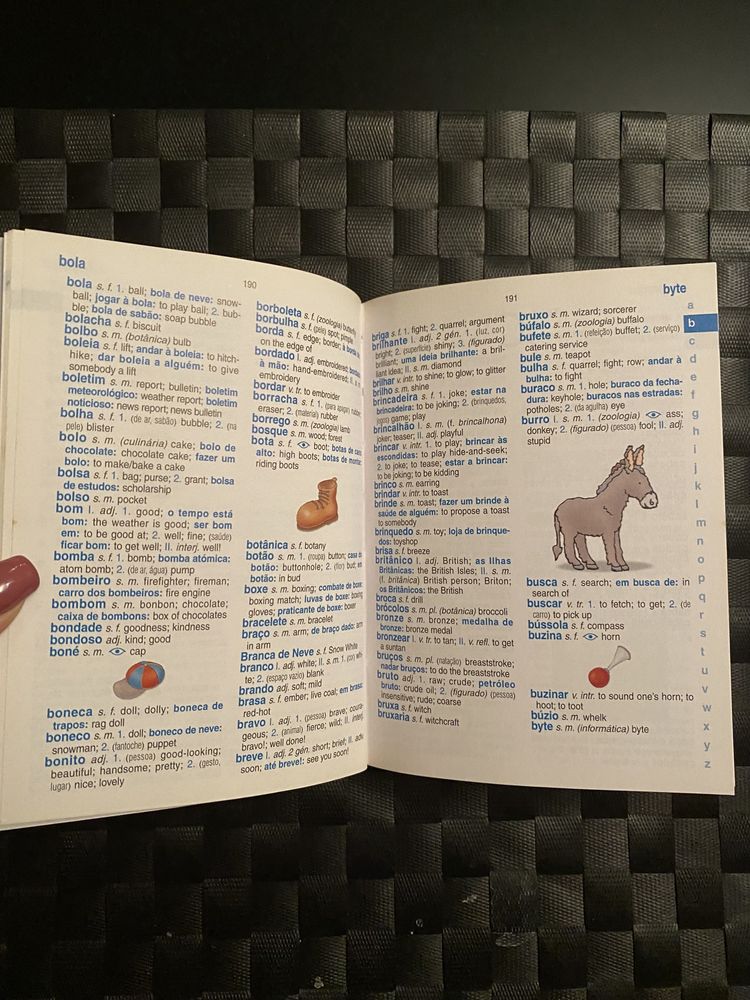 bola
190
bola s. f. 1. ball; bola de neve: snow-
ball; jogar à bola: to play ball; 2. bub-
ble; bola de sabão: soap bubble
bolacha s. f. biscuit
bolbo s. m. (botânica) bulb
boleia s. f. lift; andar à boleia: to hitch-
hike; dar boleia a alguém: to give
somebody a lift
boletim s. m. report; bulletin; boletim
meteorológico: weather report; boletim
noticioso: news report; news bulletin
bolha s. f. 1. (de ar, sabão) bubble; 2. (na
pele) blister
bolo s. m. (culinária) cake; bolo de
chocolate: chocolate cake; fazer um
bolo: to make/bake a cake
bolsa s. f. 1. bag; purse; 2. grant; bolsa
de estudos: scholarship
bolso s. m. pocket
bom I. adj. 1. good; o tempo está
bom: the weather is good; ser bom
em: to be good at; 2. well; fine; (saúde)
ficar bom: to get well; II. interj. well!
bomba s. f. 1. bomb; bomba atómica:
atom bomb; 2. (de ar, água) pump
bombeiro s. m. firefighter; fireman;
carro dos bombeiros: fire engine
bombom s. m. bonbon; chocolate;
caixa de bombons: box of chocolates
bondade s. f. goodness; kindness
bondoso adj. kind; good
boné s. m. cap
boneca s. f. doll; dolly; boneca de
trapos: rag doll
boneco s. m. 1. doll; boneco de neve:
snowman; 2. (fantoche) puppet
bonito adj. 1. (pessoa) good-looking;
beautiful; handsome; pretty; 2. (gesto,
lugar) nice; lovely
borboleta s. f. (zoologia) butterfly
borbulha s. f. (pele) spot; pimple
borda s. f. edge; border; à borda
on the edge of
bordado I. adj. embroidered; bordado
à mão: hand-embroidered; II. s. m.
embroidery
bordar v. tr. to embroider
borracha s. f. 1. (para apagar) rubber;
eraser; 2. (material) rubber
borrego s. m. (zoologia) lamb
bosque s. m. wood; forest
bota s. f. boot; botas de cano
alto: high boots; botas de montar:
riding boots
botânica s. f. botany
botão s. m. 1. (roupa) button; casa do
botão: buttonhole; 2. (flor) bud; em
botão: in bud
boxe s. m. boxing; combate de boxe:
boxing match; luvas de boxe: boxing
gloves; praticante de boxe: boxer
bracelete s. m. bracelet
braço s. m. arm; de braço dado: arm
in arm
Branca de Neve s. f. Snow White
branco I. adj. white; II. s. m. 1. (cor) whi-
te; 2. (espaço vazio) blank
brando adj. soft; mild
brasa s. f. ember; live coal; em brasa:
red-hot
bravo I. adj. 1. (pessoa) brave; coura-
geous; 2. (animal) fierce; wild; II. interj.
bravo!; well done!
breve I. adj. 2 gén. short; brief; II. adv.
soon; até breve!: see you soon!
191
byte
briga s. f. 1. fight; 2. quarrel; argument
brilhante I. adj. 2 gén. 1. (luz, cor)
bright; 2. (superfície) shiny; 3. (figurado)
brilliant; uma ideia brilhante: a bril-
liant idea; II. s. m. diamond
brilhar v. intr. to shine; to glow; to glitter
brilho s. m. shine
brincadeira s. f. 1. joke; estar na
brincadeira: to be joking; 2. (brinquedos,
jogos) game; play
brincalhão I. s. m. (f. brincalhona)
joker; teaser; II. adj. playful
brincar v. intr. 1. to play; brincar às
escondidas: to play hide-and-seek;
2. to joke; to tease; estar a brincar:
to be joking; to be kidding
brinco s. m. earring
brindar v. intr. to toast
brinde s. m. toast; fazer um brinde à
saúde de alguém: to propose a toast
to somebody
brinquedo s. m. toy; loja de brinque-
dos: toyshop
brisa s. f. breeze
britânico I. adj. British; as Ilhas
Britânicas: the British Isles; II. s. m.
(f. britânica) British person; Briton;
os Britânicos: the British
broca s. f. drill
brócolos s. m. pl. (botânica) broccoli
bronze s. m. bronze; medalha de
bronze: bronze medal
bronzear I. v. tr. to tan; II. v. refl. to get
a suntan
bruços s. m. pl. (natação) breaststroke;
nadar bruços: to do the breaststroke
bruto adj. 1. raw; crude; petróleo
bruto: crude oil; 2. (figurado) (pessoa)
insensitive; rude; coarse
bruxa s. f. witch
bruxaria s. f. witchcraft
bruxo s. m. wizard; sorcerer
búfalo s. m. (zoologia) buffalo
bufete s. m. 1. (refeição) buffet; 2. (serviço)
catering service
bule s. m. teapot
bulha s. f. quarrel; fight; row; andar à
bulha: to fight
buraco s. m. 1. hole; buraco da fecha-
dura: keyhole; buracos nas estradas:
potholes; 2. (da agulha) eye
burro I. s. m. 1. (zoologia) ass;
donkey; 2. (figurado) (pessoa) fool; II. adj.
stupid
busca s. f. search; em busca de: in
search of
buscar v. tr. 1. to fetch; to get; 2. (de
carro) to pick up
bússola s. f. compass
buzina s. f. horn
buzinar v. intr. to sound one's horn; to
hoot; to toot
búzio s. m. whelk
byte s. m. (informática) byte
a
b
c
d
e
f
g
h
i
j
k
l
m
n
o
p
q
r
s
t
u
v
w
x
y
z